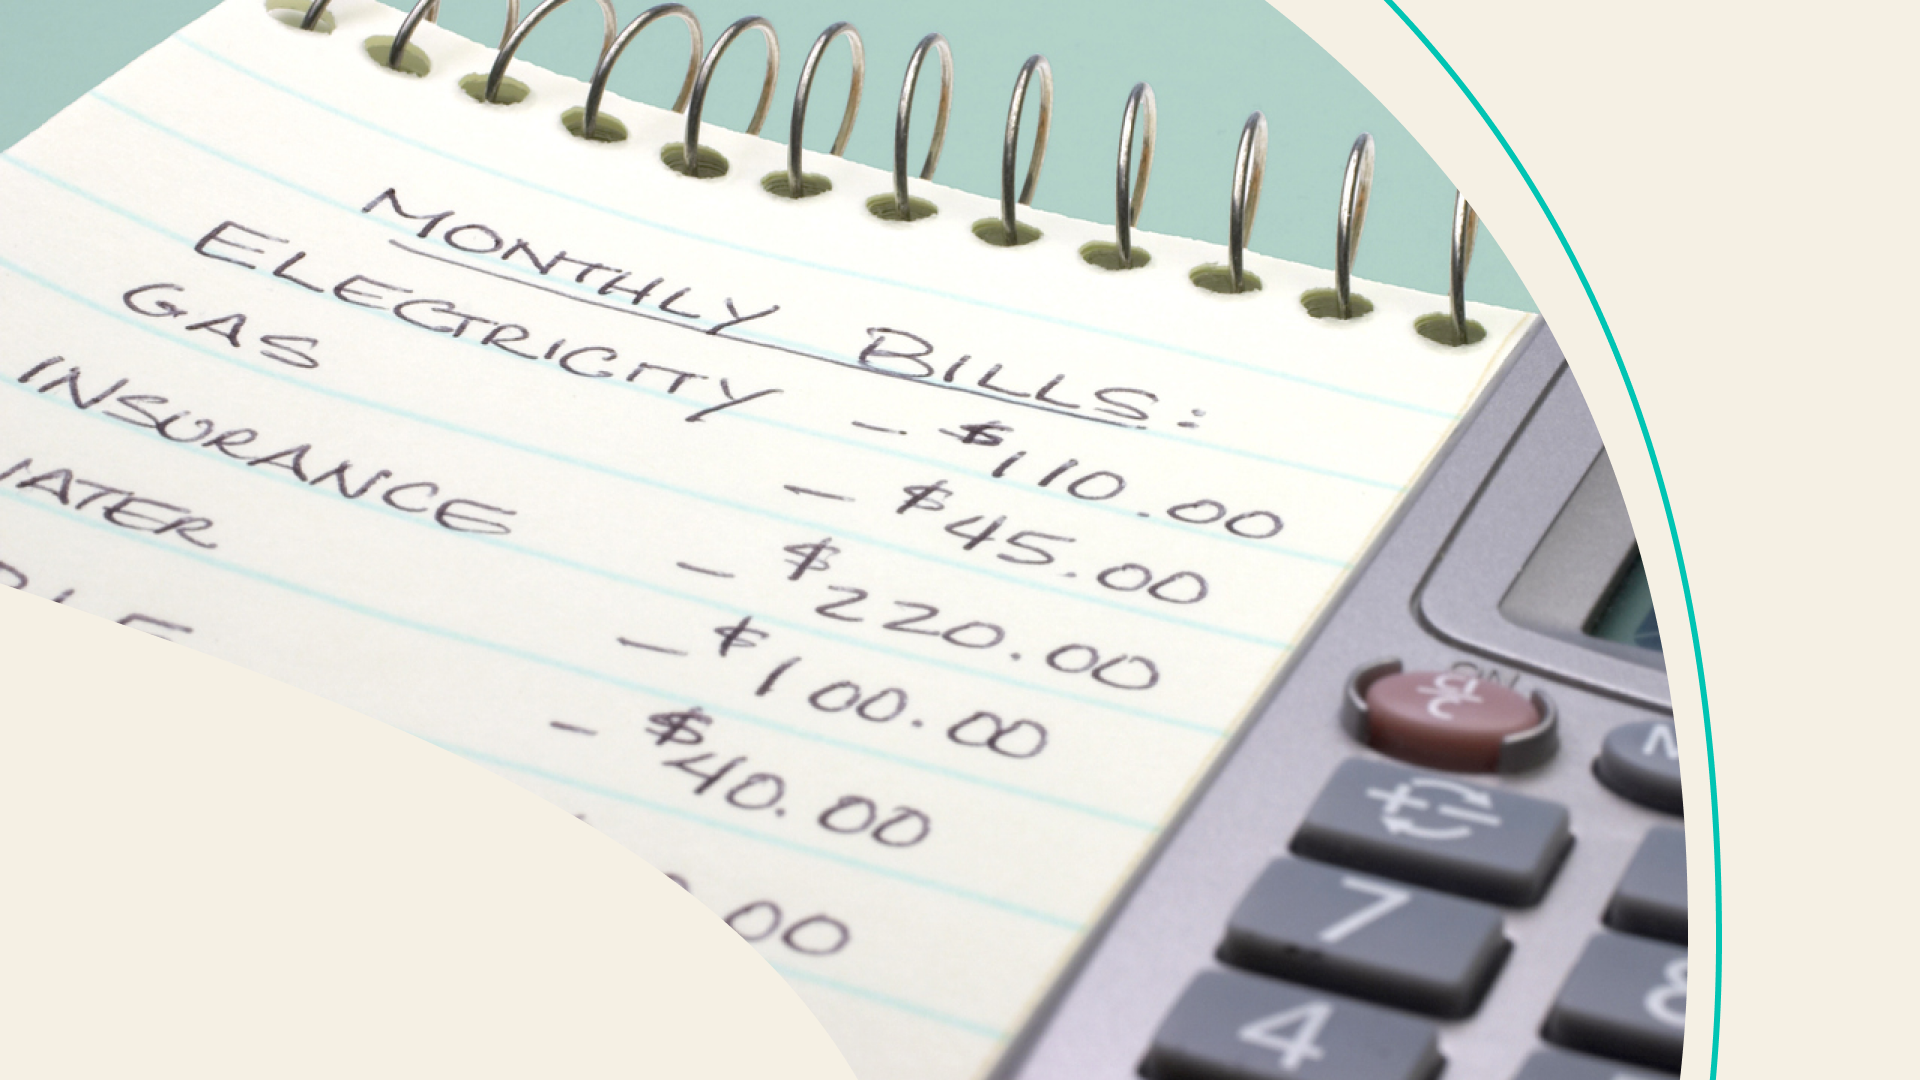 MONTHLY BILLS:
ELECTRICITY - $110.00
GAS - $45.00
INSURANCE - $220.00
WATER - $100.00
- $40.00
.00
ON
7
8
4